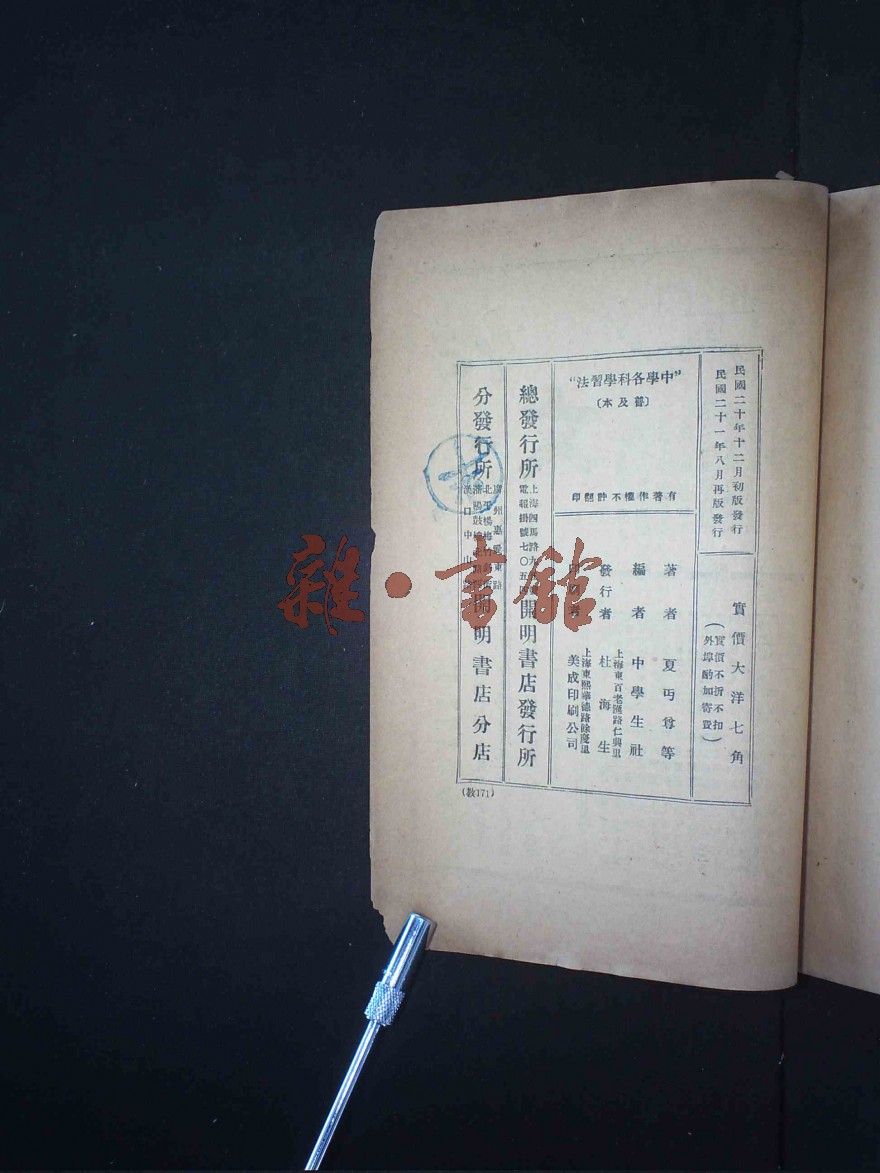 民國二十年十二月初版發行
民國二十一年八月再版發行
實價大洋七角
(實價不折不扣
外埠酌加寄費)
“中學各科學習法”
(普及本)
有著作權不許翻印
著者 夏丏尊等
編者 中學生社
發行者 上海東百老匯路仁興里
杜海生
印刷者 上海東熙華德路餘慶里
美成印刷公司
總發行所 上海四馬路
電報掛號七〇五四
開明書店發行所
分發行所 廣州惠愛東路
北平楊梅竹斜街
瀋陽鼓樓北路
漢口中山路
開明書店分店
(教171)
雜·書館